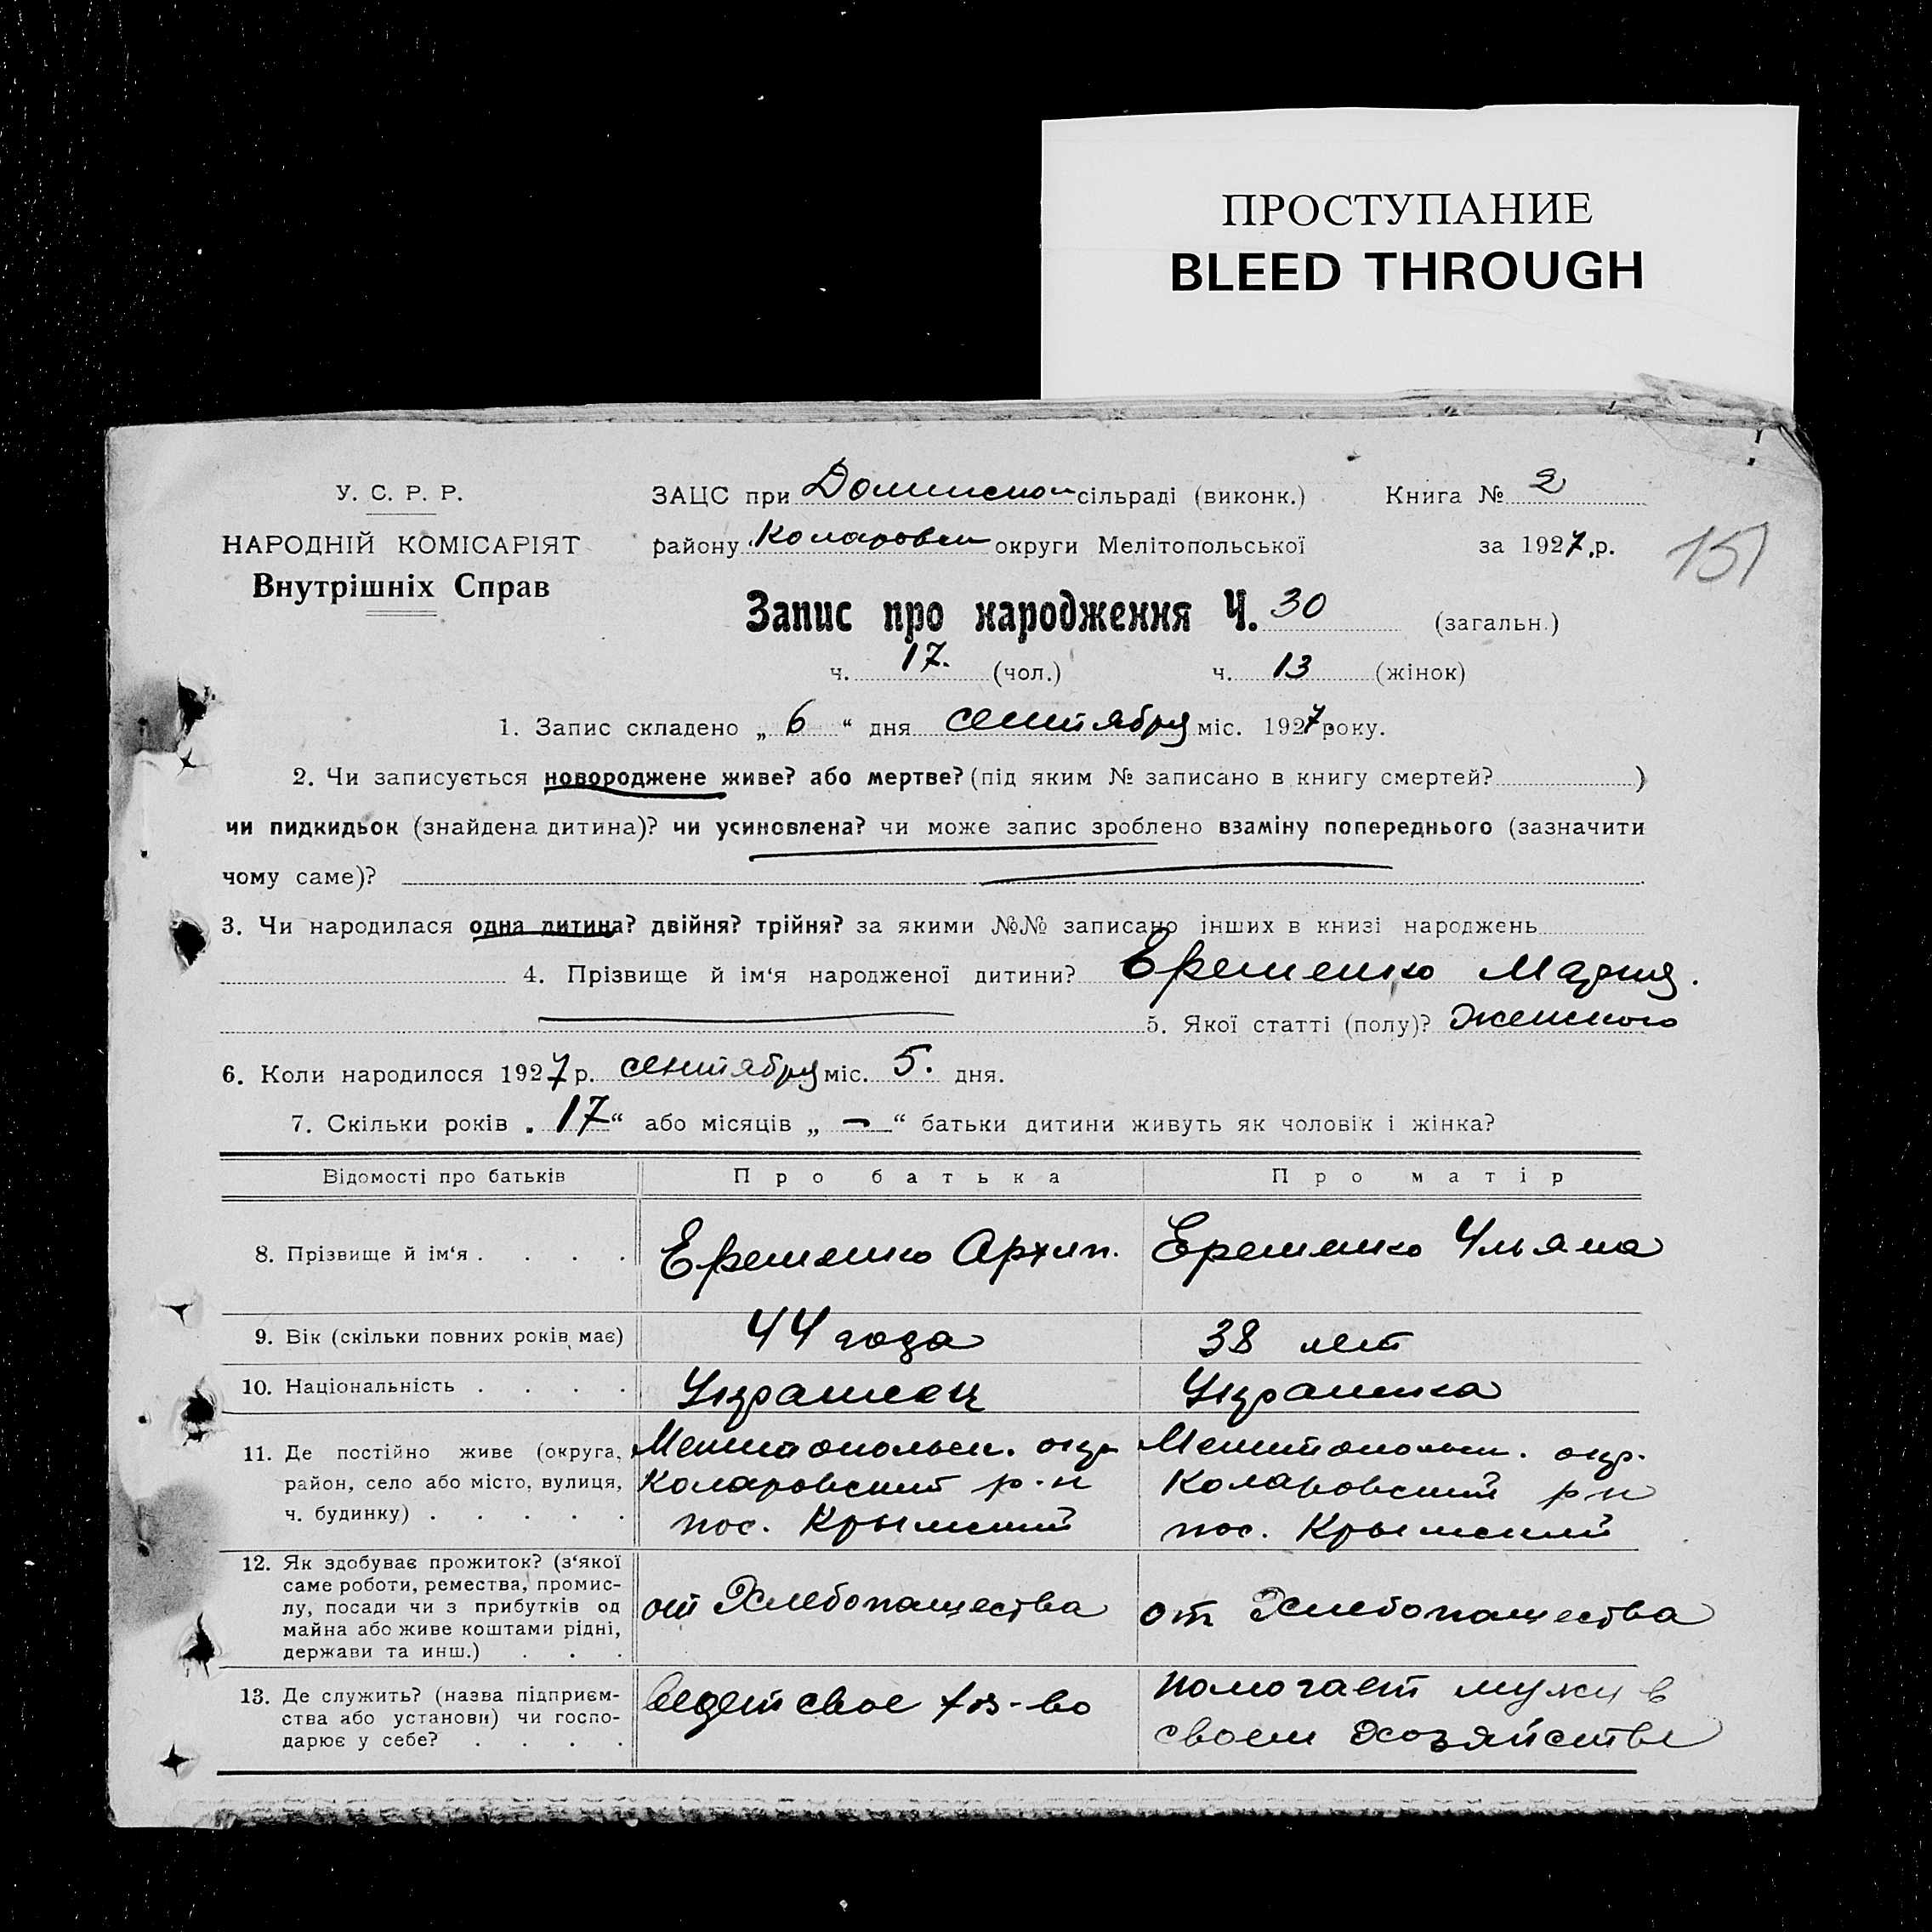 ПРОСТУПАНИЕ
BLEED THROUGH
У. С. Р. Р.
НАРОДНІЙ КОМІСАРІЯТ
Внутрішніх Справ
ЗАЦС при сільраді (виконк.) Книга № 2
району Коларовск округи Мелітопольської за 1927 р.
151
Запис про народження Ч. 30 (загальн.)
ч. 17. (чол.) ч. 13 (жінок)
1. Запис складено „ 6 “ дня сентября міс. 1927 року.
2. Чи записується новороджене живе? або мертве? (під яким № записано в книгу смертей? )
чи пидкидьок (знайдена дитина)? чи усиновлена? чи може запис зроблено взаміну попереднього (зазначити
чому саме)?
3. Чи народилася одна дитина? двійня? трійня? за якими №№ записано інших в книзі народжень
4. Прізвище й ім‘я народженої дитини? Еременко Мария.
5. Якої статті (полу)? Женского
6. Коли народилося 1927 р. сентября міс. 5. дня.
7. Скільки років „ 17 “ або місяців „ — “ батьки дитини живуть як чоловік і жінка?
Відомості про батьків Про батька Про матір
8. Прізвище й ім‘я . . . . Еременко Архип. Еременко Ульяна
9. Вік (скільки повних років має) 44 года 38 лет
10. Національність . . . . Украинец Украинка
11. Де постійно живе (округа, район, село або місто, вулиця, ч. будинку) . . . . .
Мелитопольск. окр.
Коларовский р-н
пос. Крымский
Мелитопольск. окр.
Коларовский р-н
пос. Крымский
12. Як здобуває прожиток? (з‘якої
саме роботи, ремества, промис-
лу, посади чи з прибутків од
майна або живе коштами рідні,
держави та инш.) . . .
от Хлебопашества
от Хлебопашества
13. Де служить? (назва підприєм-
ства або установи) чи госпо-
дарює у себе? . . . .
ведет свое хоз-во
помогает мужу в
своем хозяйстве